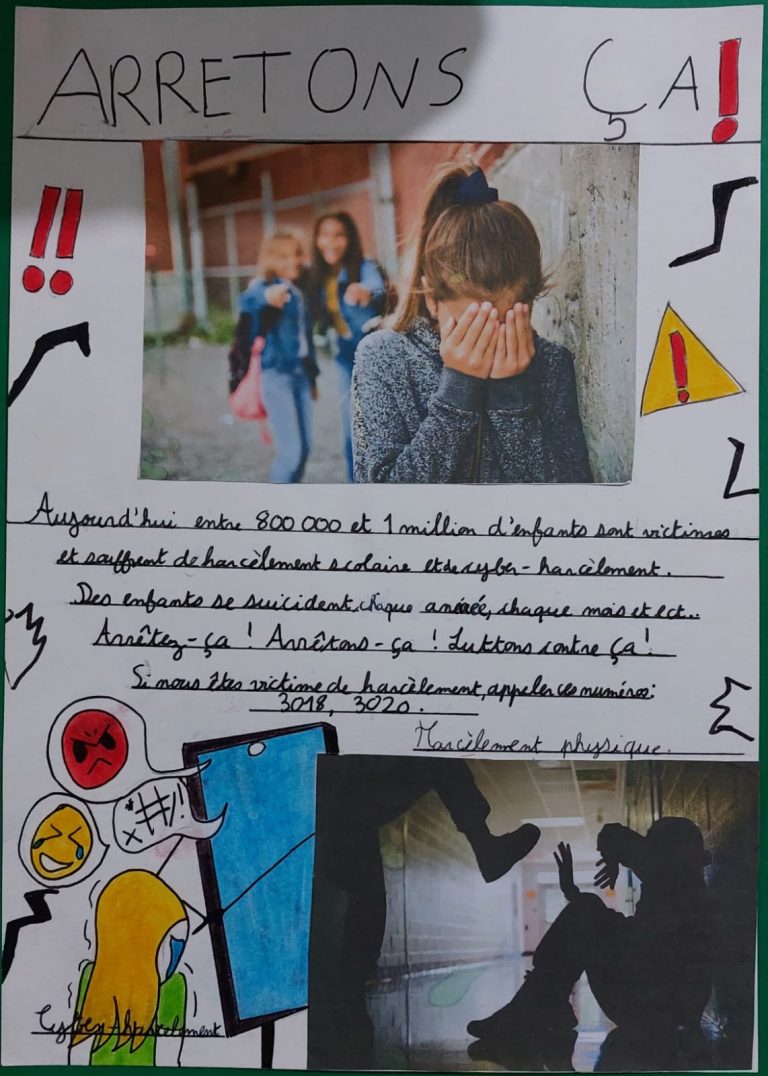 ARRETONS ÇA!
!!
!
Aujourd'hui entre 800 000 et 1 million d'enfants sont victimes
et souffrent de harcèlement scolaire et de cyber-harcèlement.
Des enfants se suicident, chaque année, chaque mois et ect...
Arrêtez-ça ! Arrêtons-ça ! Luttons contre ça !
Si vous êtes victime de harcèlement, appeler ces numéros:
3018, 3020.
Harcèlement physique.
*#/!
x
Cyber harcèlement